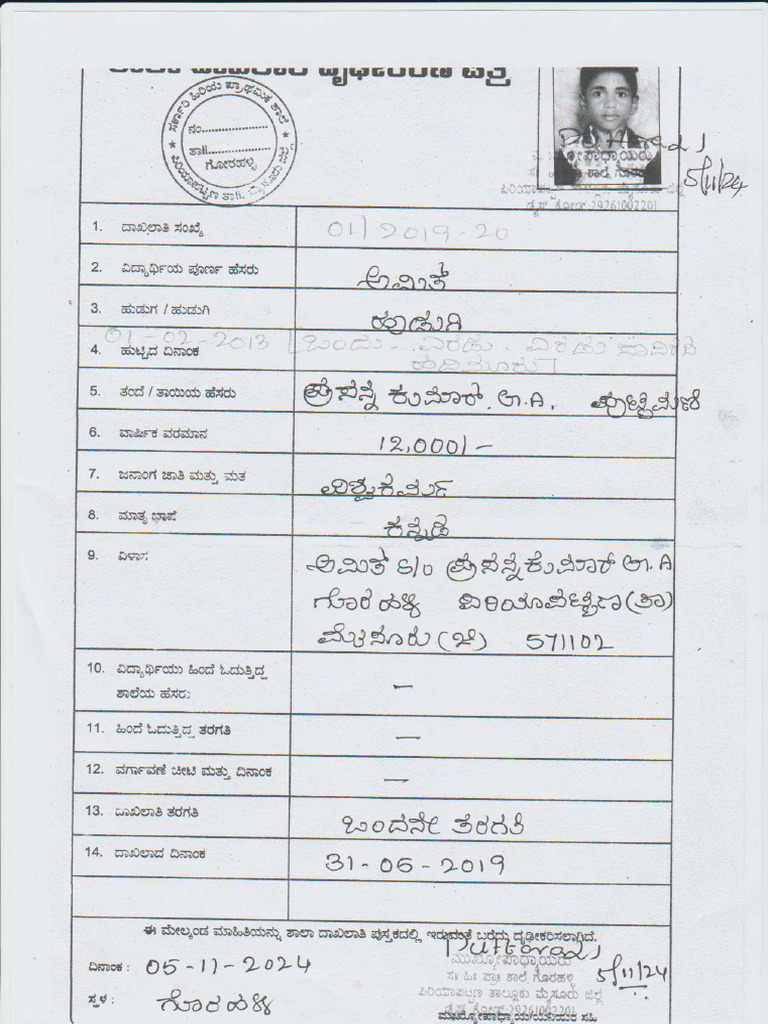 ಶಾಲಾ ದಾಖಲಾತಿ ದೃಢೀಕರಣ ಪತ್ರ
ಸರ್ಕಾರಿ ಹಿರಿಯ ಪ್ರಾಥಮಿಕ ಶಾಲೆ
ನಂ..................
ತಾ||..................
ಗೋರಹಳ್ಳಿ
ಪಿರಿಯಾಪಟ್ಟಣ ತಾ||. ಮೈಸೂರು ಜಿಲ್ಲೆ
ಮುಖ್ಯೋಪಾಧ್ಯಾಯರು
5/11/24
ಸ. ಹಿ. ಪ್ರಾ. ಶಾಲೆ, ಗೊರಹಳ್ಳಿ
ಪಿರಿಯಾಪಟ್ಟಣ ತಾಲ್ಲೂಕು ಮೈಸೂರು ಜಿಲ್ಲೆ
ಡೈಸ್ ಕೋಡ್-29261002201
1. ದಾಖಲಾತಿ ಸಂಖ್ಯೆ 01/2019-20
2. ವಿದ್ಯಾರ್ಥಿಯ ಪೂರ್ಣ ಹೆಸರು ಅಮಿತ್
3. ಹುಡುಗ / ಹುಡುಗಿ ಹುಡುಗ
4. ಹುಟ್ಟಿದ ದಿನಾಂಕ 01-02-2013 (ಒಂದು. ಎರಡು. ಎರಡು ಸಾವಿರದ
ಹದಿಮೂರು)
5. ತಂದೆ / ತಾಯಿಯ ಹೆಸರು ಪ್ರಸನ್ನ ಕುಮಾರ್. ಆ.A. ಪುಟ್ಟಮಣಿ
6. ವಾರ್ಷಿಕ ವರಮಾನ 12,000/-
7. ಜನಾಂಗ ಜಾತಿ ಮತ್ತು ಮತ ವಿಶ್ವಕರ್ಮ
8. ಮಾತೃ ಭಾಷೆ ಕನ್ನಡ
9. ವಿಳಾಸ ಅಮಿತ್ S/o ಪ್ರಸನ್ನಕುಮಾರ್ ಆ.A
ಗೊರಹಳ್ಳಿ ಪಿರಿಯಾಪಟ್ಟಣ(ತಾ)
ಮೈಸೂರು(ಜಿ) 571102
10. ವಿದ್ಯಾರ್ಥಿಯು ಹಿಂದೆ ಓದುತ್ತಿದ್ದ —
ಶಾಲೆಯ ಹೆಸರು
11. ಹಿಂದೆ ಓದುತ್ತಿದ್ದ ತರಗತಿ —
12. ವರ್ಗಾವಣೆ ಚೀಟಿ ಮತ್ತು ದಿನಾಂಕ —
13. ದಾಖಲಾತಿ ತರಗತಿ ಒಂದನೇ ತರಗತಿ
14. ದಾಖಲಾದ ದಿನಾಂಕ 31-05-2019
ಈ ಮೇಲ್ಕಂಡ ಮಾಹಿತಿಯನ್ನು ಶಾಲಾ ದಾಖಲಾತಿ ಪುಸ್ತಕದಲ್ಲಿ ಇರುವಂತೆ ಬರೆದು ದೃಢೀಕರಿಸಲಾಗಿದೆ.
ದಿನಾಂಕ : 05-11-2024
ಮುಖ್ಯೋಪಾಧ್ಯಾಯರು
ಸ. ಹಿ. ಪ್ರಾ. ಶಾಲೆ, ಗೊರಹಳ್ಳಿ 5/11/24
ಪಿರಿಯಾಪಟ್ಟಣ ತಾಲ್ಲೂಕು ಮೈಸೂರು ಜಿಲ್ಲೆ
ಸ್ಥಳ : ಗೊರಹಳ್ಳಿ